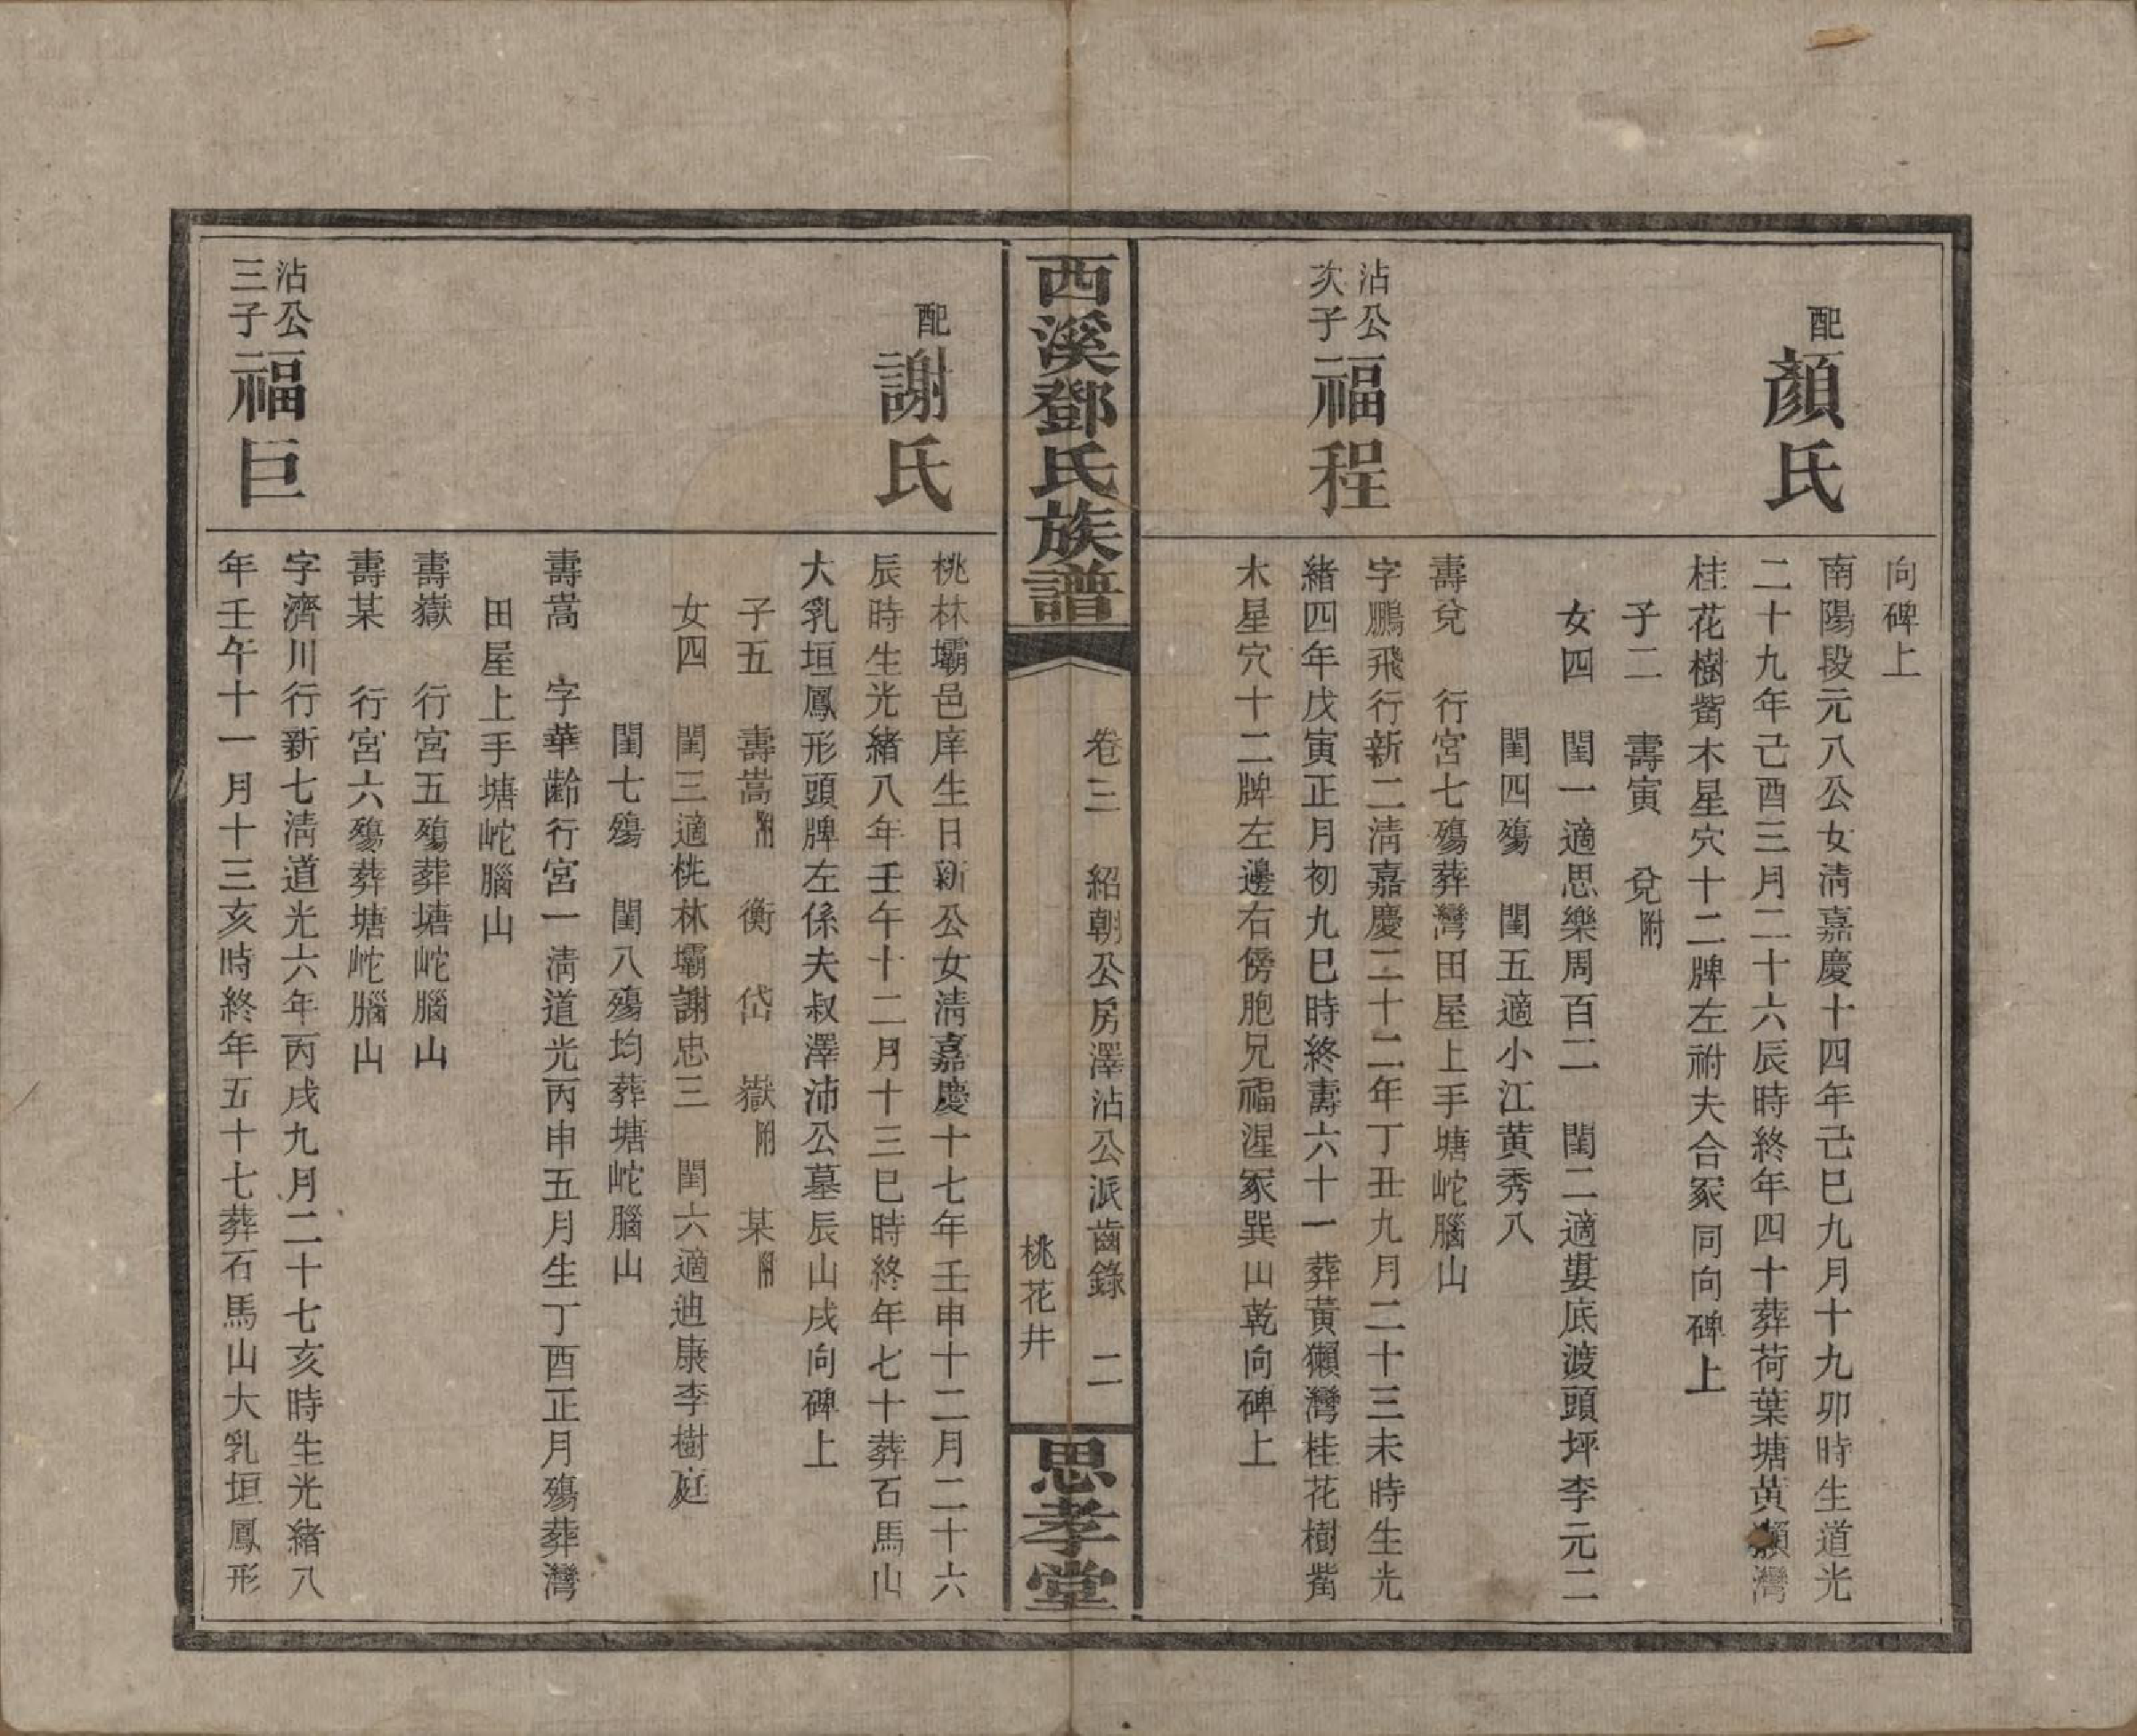 向碑上
配
顏氏
南陽段元八公女淸嘉慶十四年己巳九月十九卯時生道光
二十九年己酉三月二十六辰時終年四十葬荷葉塘黃獺灣
桂花樹觜木星穴十二牌左祔夫合冢同向碑上
子二　壽寅　兌附
女四　閨一適思樂周百二　閨二適婁底渡頭坪李元二
閨四殤　閨五適小江黃秀八
壽兌　行宮七殤葬灣田屋上手塘岮腦山
沾公
次子
福程
字鵬飛行新二淸嘉慶二十二年丁丑九月二十三未時生光
緒四年戊寅正月初九巳時終壽六十一葬黃獺灣桂花樹觜
木星穴十二牌左邊右傍胞兄福湦冢巽山乾向碑上
西溪鄧氏族譜
卷三　紹朝公房澤沾公派齒錄　二
桃花井
思孝堂
配
謝氏
桃林壩邑庠生日新公女淸嘉慶十七年壬申十二月二十六
辰時生光緒八年壬午十二月十三巳時終年七十葬石馬山
大乳垣鳳形頭牌左係夫叔澤沛公墓辰山戌向碑上
子五　壽嵩附　衡　岱　嶽附　某附
女四　閨三適桃林壩謝忠三　閨六適迪康李樹庭
閨七殤　閨八殤均葬塘岮腦山
壽嵩　字華齡行宮一淸道光丙申五月生丁酉正月殤葬灣
田屋上手塘岮腦山
壽嶽　行宮五殤葬塘岮腦山
壽某　行宮六殤葬塘岮腦山
沾公
三子
福巨
字濟川行新七淸道光六年丙戌九月二十七亥時生光緒八
年壬午十一月十三亥時終年五十七葬石馬山大乳垣鳳形